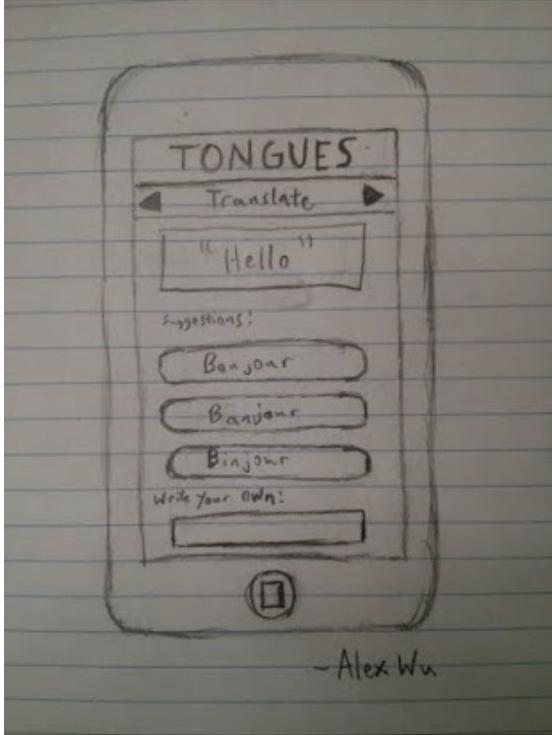 TONGUES
Translate
"Hello"
Suggestions:
Bonjour
Banjour
Binjour
Write Your Own:
- Alex Wu